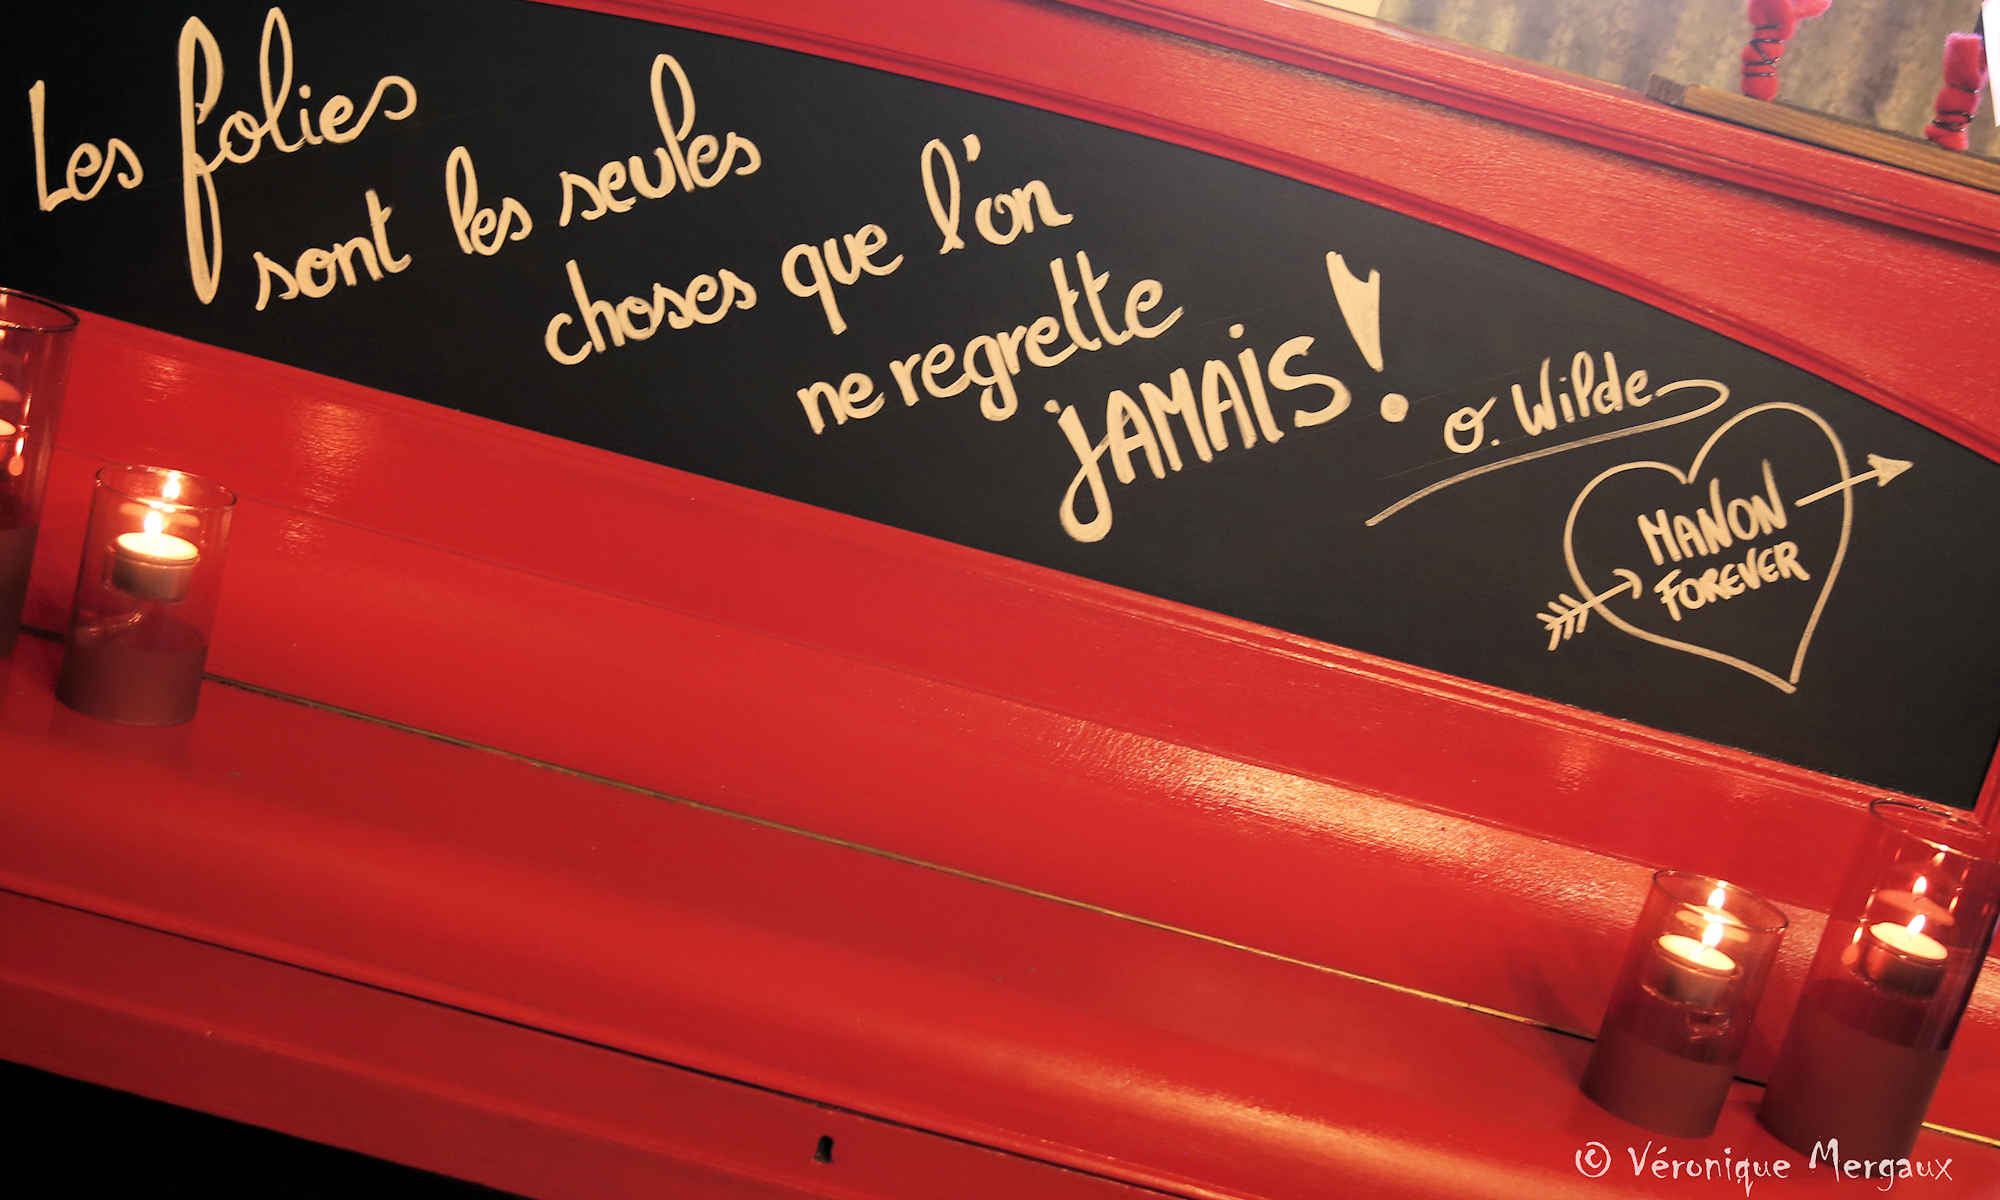 Les folies
sont les seules
choses que l'on
ne regrette
JAMAIS!
O. Wilde
MANON
FOREVER
© Véronique Mergaux